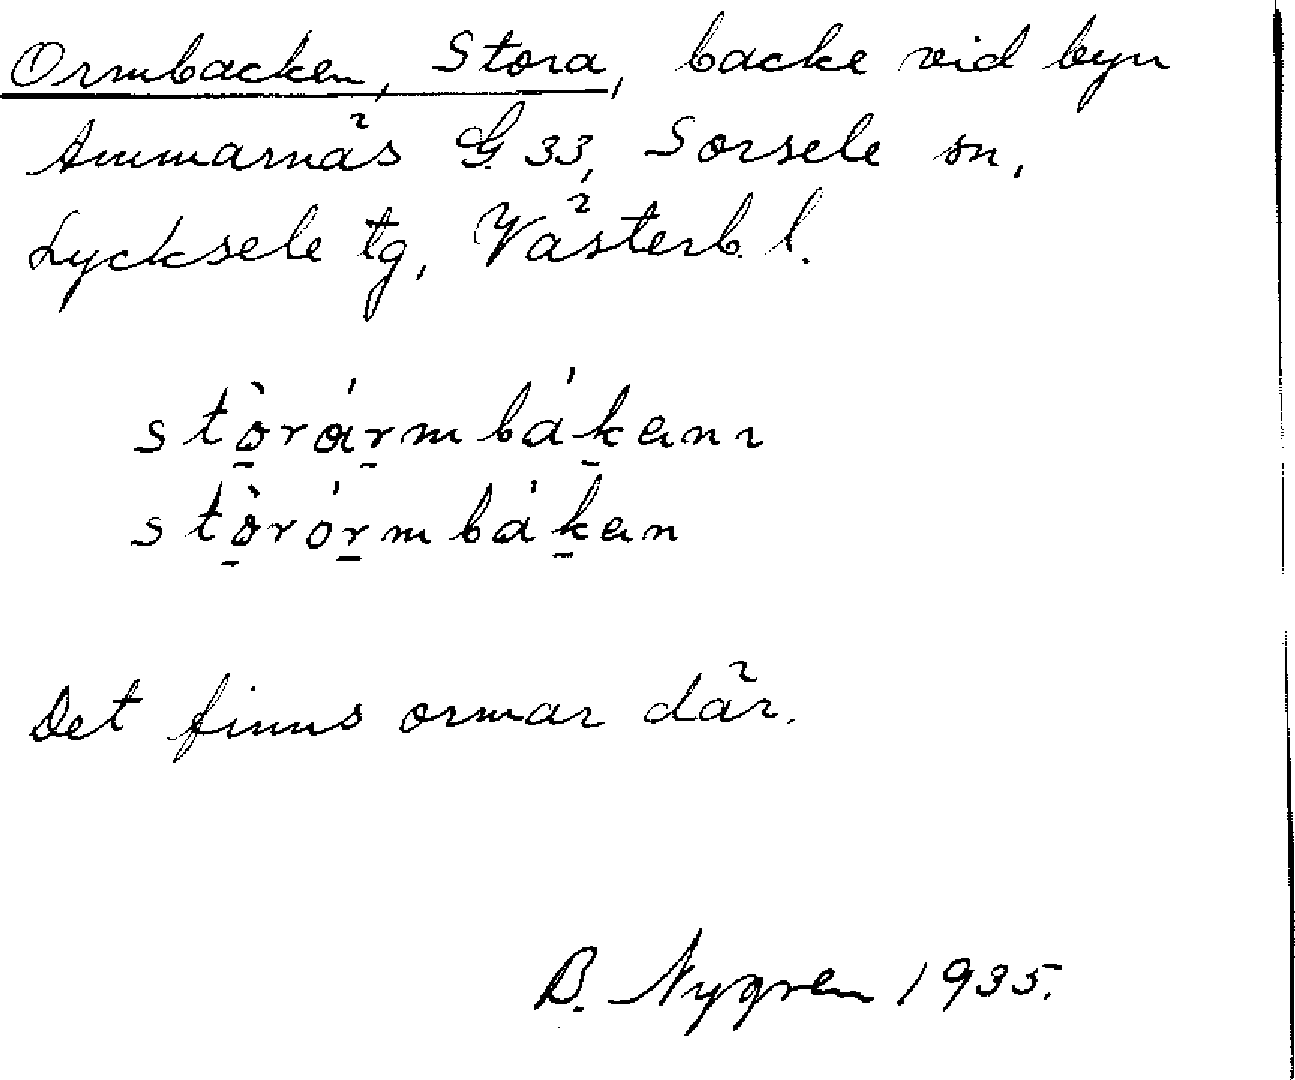 Ormbacken, Stora, backe vid byn
Ammarnäs G 33, Sorsele sn,
Lycksele tg, Västerb. l.
Det finns ormar där.
B. Nygren 1935.